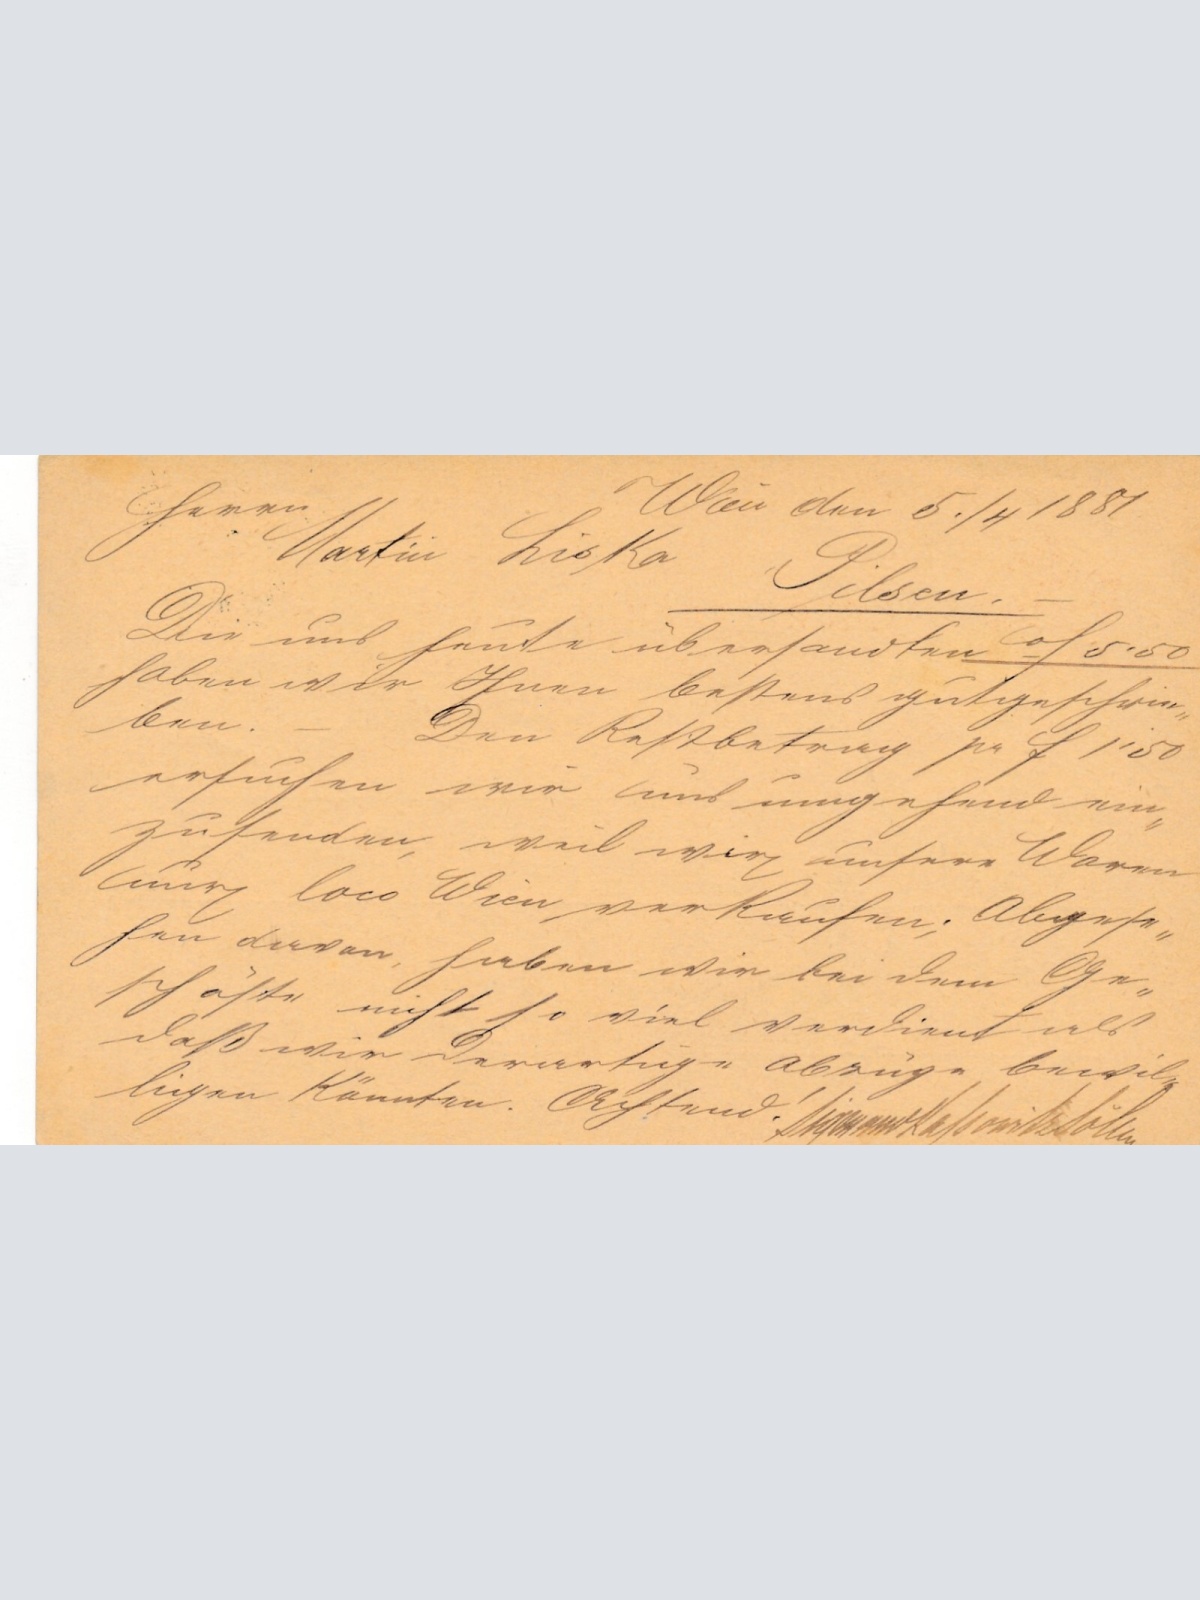 Herrn Wien den 5./4 1881
Martin Liska Pilsen. —
Die uns heute übersandten f 5·50
haben wir Ihnen bestens gutgeschrie„
ben. — Den Restbetrag pr f 1·50
ersuchen wir uns umgehend ein„
zusenden, weil wir unsere Waren
nur loco Wien verkaufen; Abgese„
hen davon, haben wir bei dem Ge„
schäfte nicht so viel verdient als
daß wir derartige Abzüge bewil„
ligen könnten. Achtend!